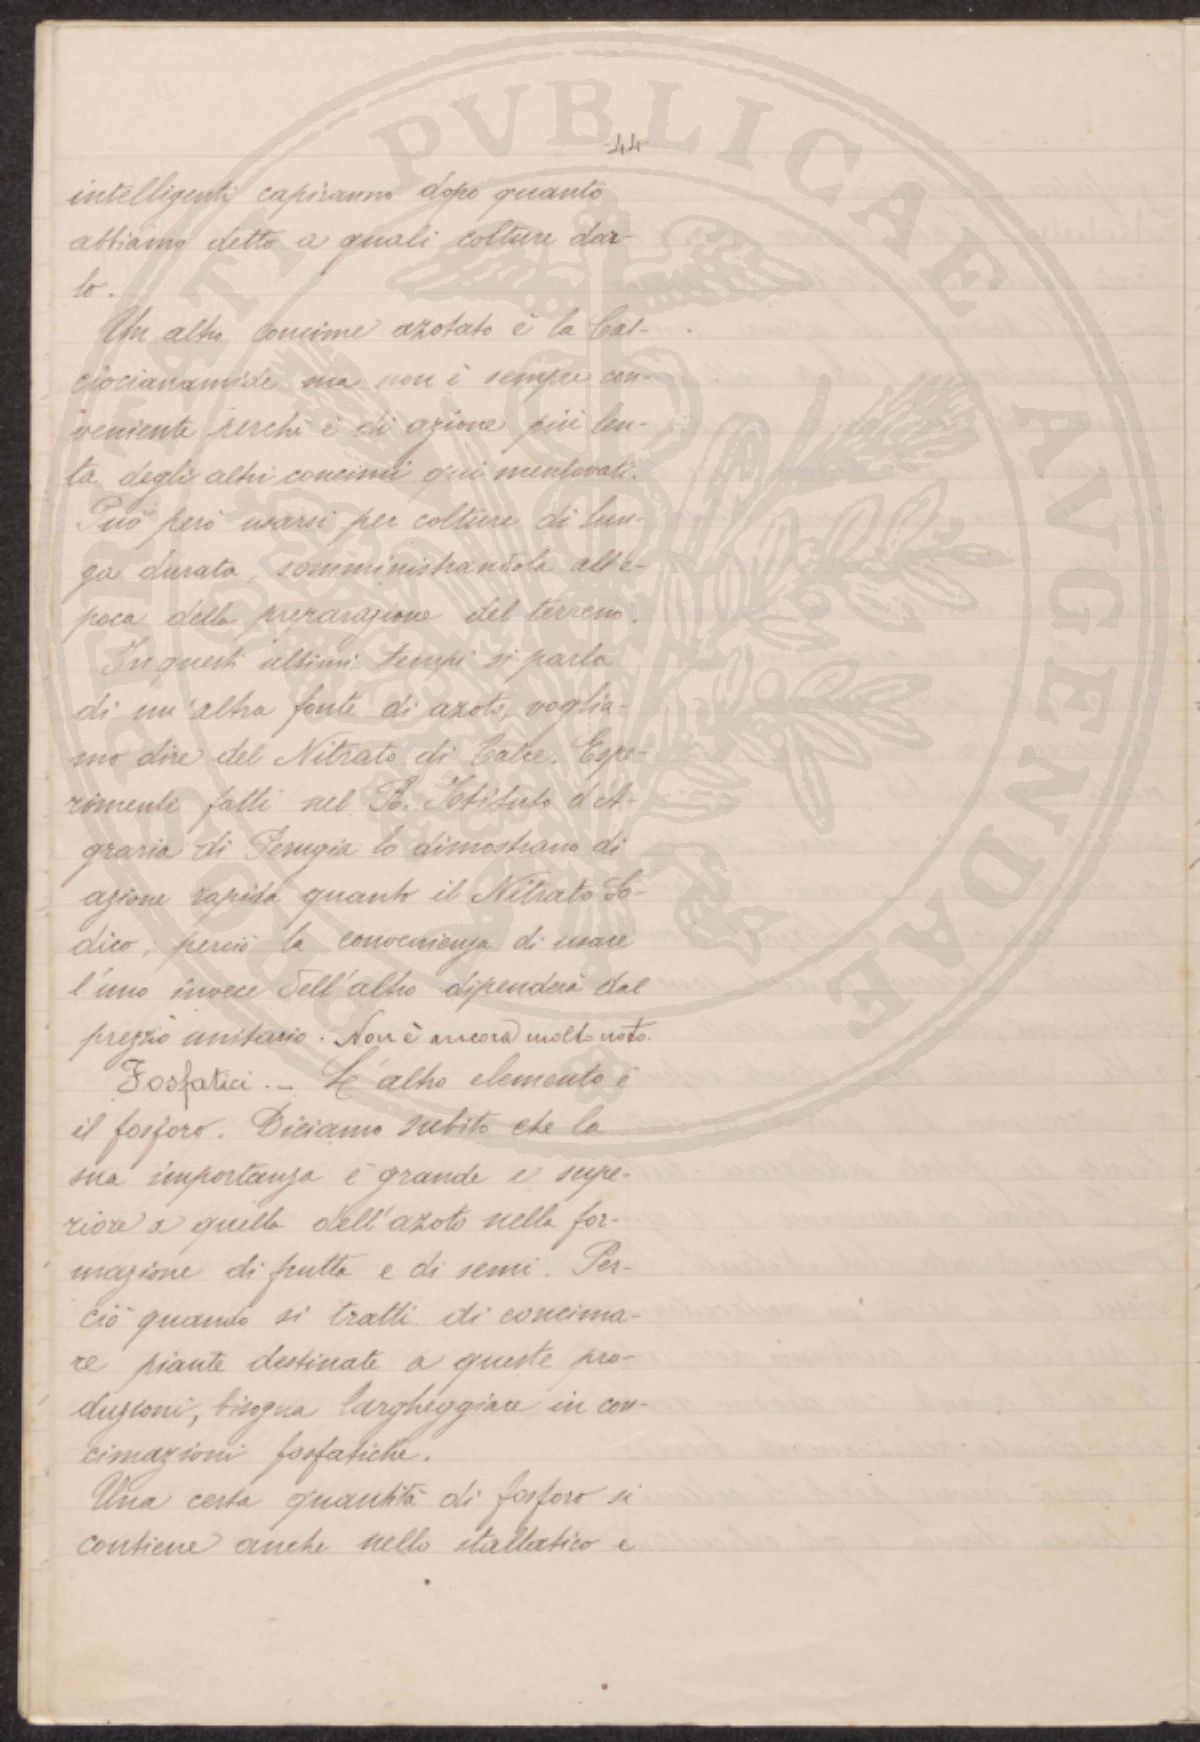 PROSPERITATI PVBLICAE AVGENDAE
44
intelligenti capiranno dopo quanto
abbiamo detto a quali colture dar-
lo.
Un altro concime azotato è la Cal-
ciocianamide ma non è sempre con-
veniente perchè è di azione più len-
ta degli altri concimi qui mentovati.
Può però usarsi per colture di lun-
ga durata, somministrandola all'e-
poca della preparazione del terreno.
In questi ultimi tempi si parla
di un'altra fonte di azoto, voglia-
mo dire del Nitrato di Calce. Espe-
rimenti fatti nel R. Istituto d'A-
graria di Perugia lo dimostrano di
azione rapida quanto il Nitrato So-
dico; perciò la convenienza di usare
l'uno invece dell'altro dipenderà dal
prezzo unitario. Non è ancora molto noto.
Fosfatici. — L'altro elemento è
il fosforo. Diciamo subito che la
sua importanza è grande e supe-
riore a quella dell'azoto nella for-
mazione di frutta e di semi. Per-
ciò quando si tratti di concima-
re piante destinate a queste pro-
duzioni, bisogna largheggiare in con-
cimazioni fosfatiche.
Una certa quantità di fosforo si
contiene anche nello stallatico e